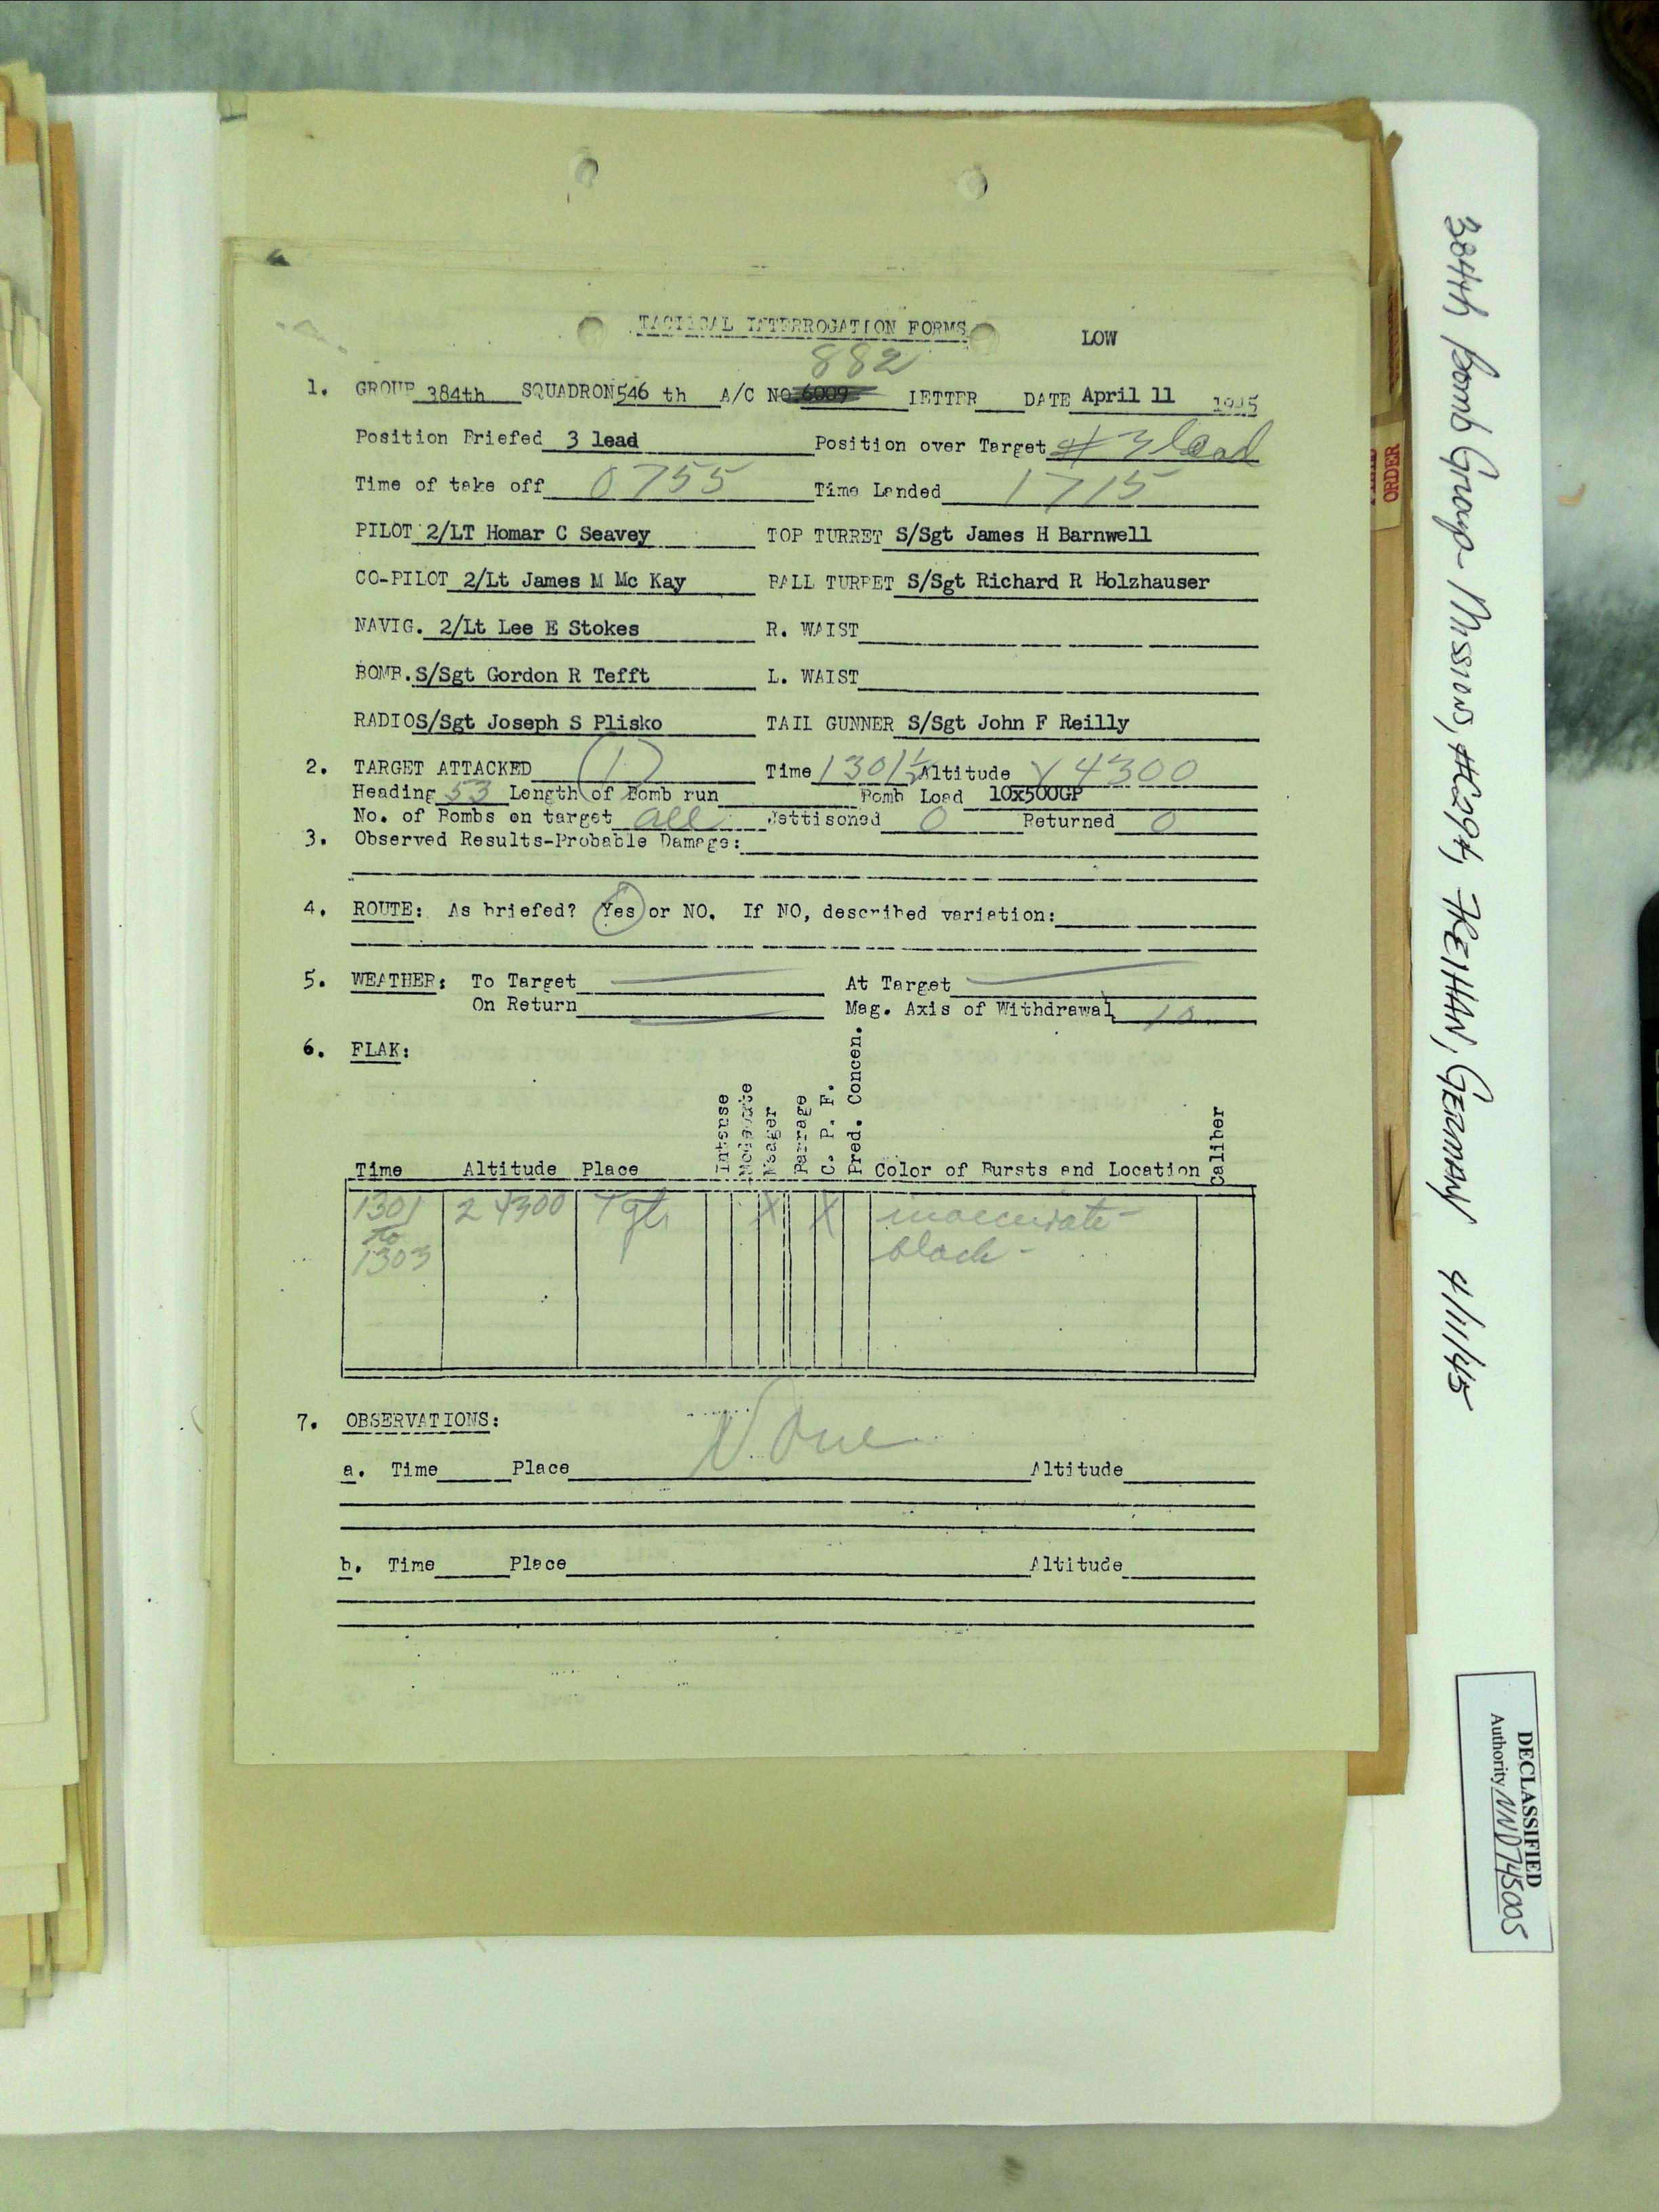 TACTICAL INTERROGATION FORMS
LOW
882
1. GROUP 384th SQUADRON 546 th A/C NO. 6009 LETTER DATE April 11 1945
Position Briefed 3 lead Position over Target #3 lead
Time of take off 0755 Time Landed 1715
PILOT 2/LT Homar C Seavey TOP TURRET S/Sgt James H Barnwell
CO-PILOT 2/Lt James M Mc Kay BALL TURRET S/Sgt Richard R Holzhauser
NAVIG. 2/Lt Lee E Stokes R. WAIST
BOMB. S/Sgt Gordon R Tefft L. WAIST
RADIO S/Sgt Joseph S Plisko TAIL GUNNER S/Sgt John F Reilly
2. TARGET ATTACKED 1 Time 1301½ Altitude 24300
Heading 53 Length of Bomb run Bomb Load 10x500GP
No. of Bombs on target all Jettisoned 0 Returned 0
3. Observed Results-Probable Damage:
4. ROUTE: As briefed? Yes or NO. If NO, described variation:
5. WEATHER: To Target At Target
On Return Mag. Axis of Withdrawal
6. FLAK:
Time Altitude Place Intense Moderate Meager Barrage C. P. F. Pred. Concen. Color of Bursts and Location Caliber
1301 24300 Tgt X X inaccurate -
to black -
1303
7. OBSERVATIONS:
None
a. Time Place Altitude
b. Time Place Altitude
ORDER
384th Bomb Group Mission, #294, GERMANY 4/11/45
DECLASSIFIED
Authority NND745005